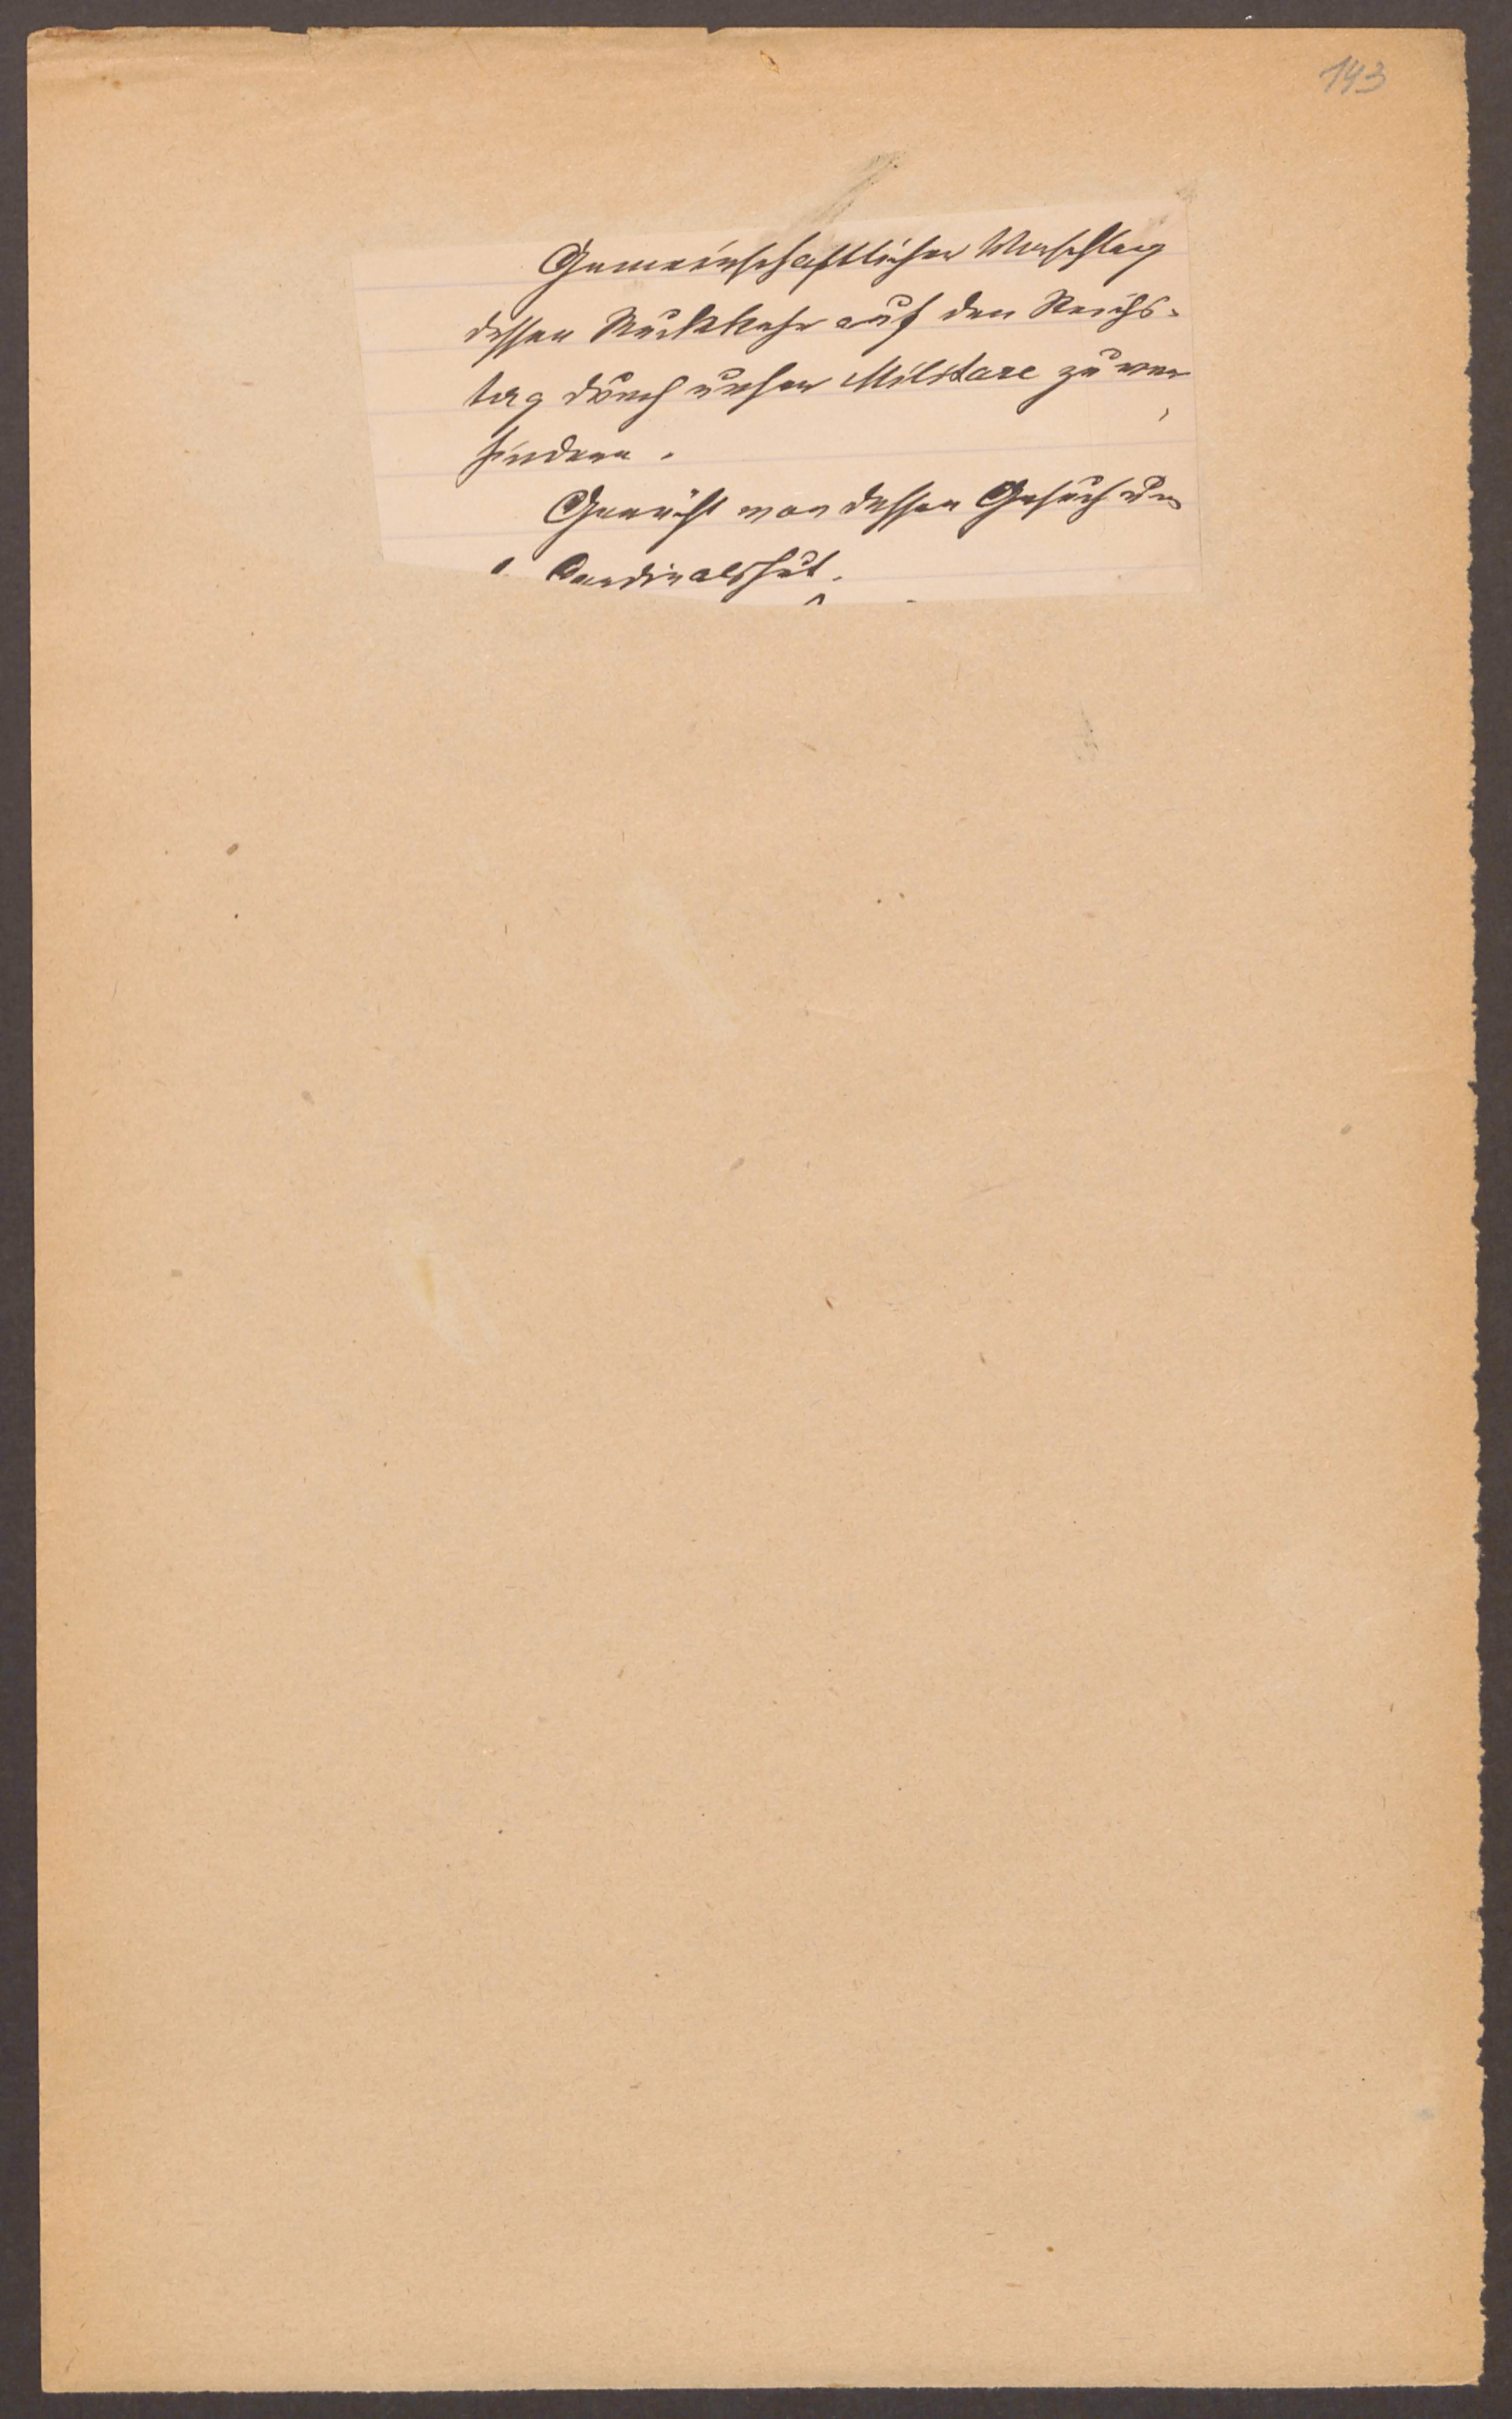 143
Gemeinschaftlicher Vorschlag
dessen Rückkehr auf den Reichs-
tag durch unser Militare zu ver
hindern.
Gerücht von dessen Gesuch um
Cardinalshut.